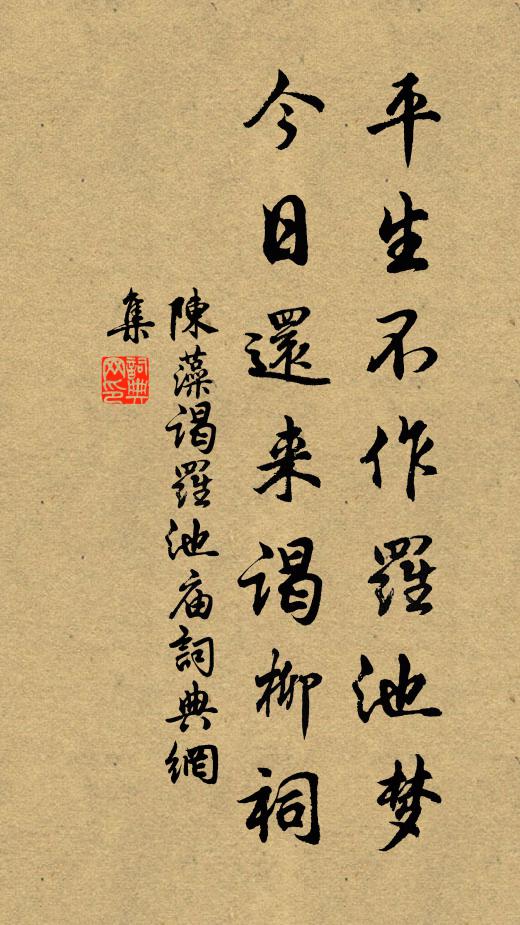 平生不作羅池梦
今日還来谒柳祠
陳藻谒羅池庙詞典網
集
詞典網印